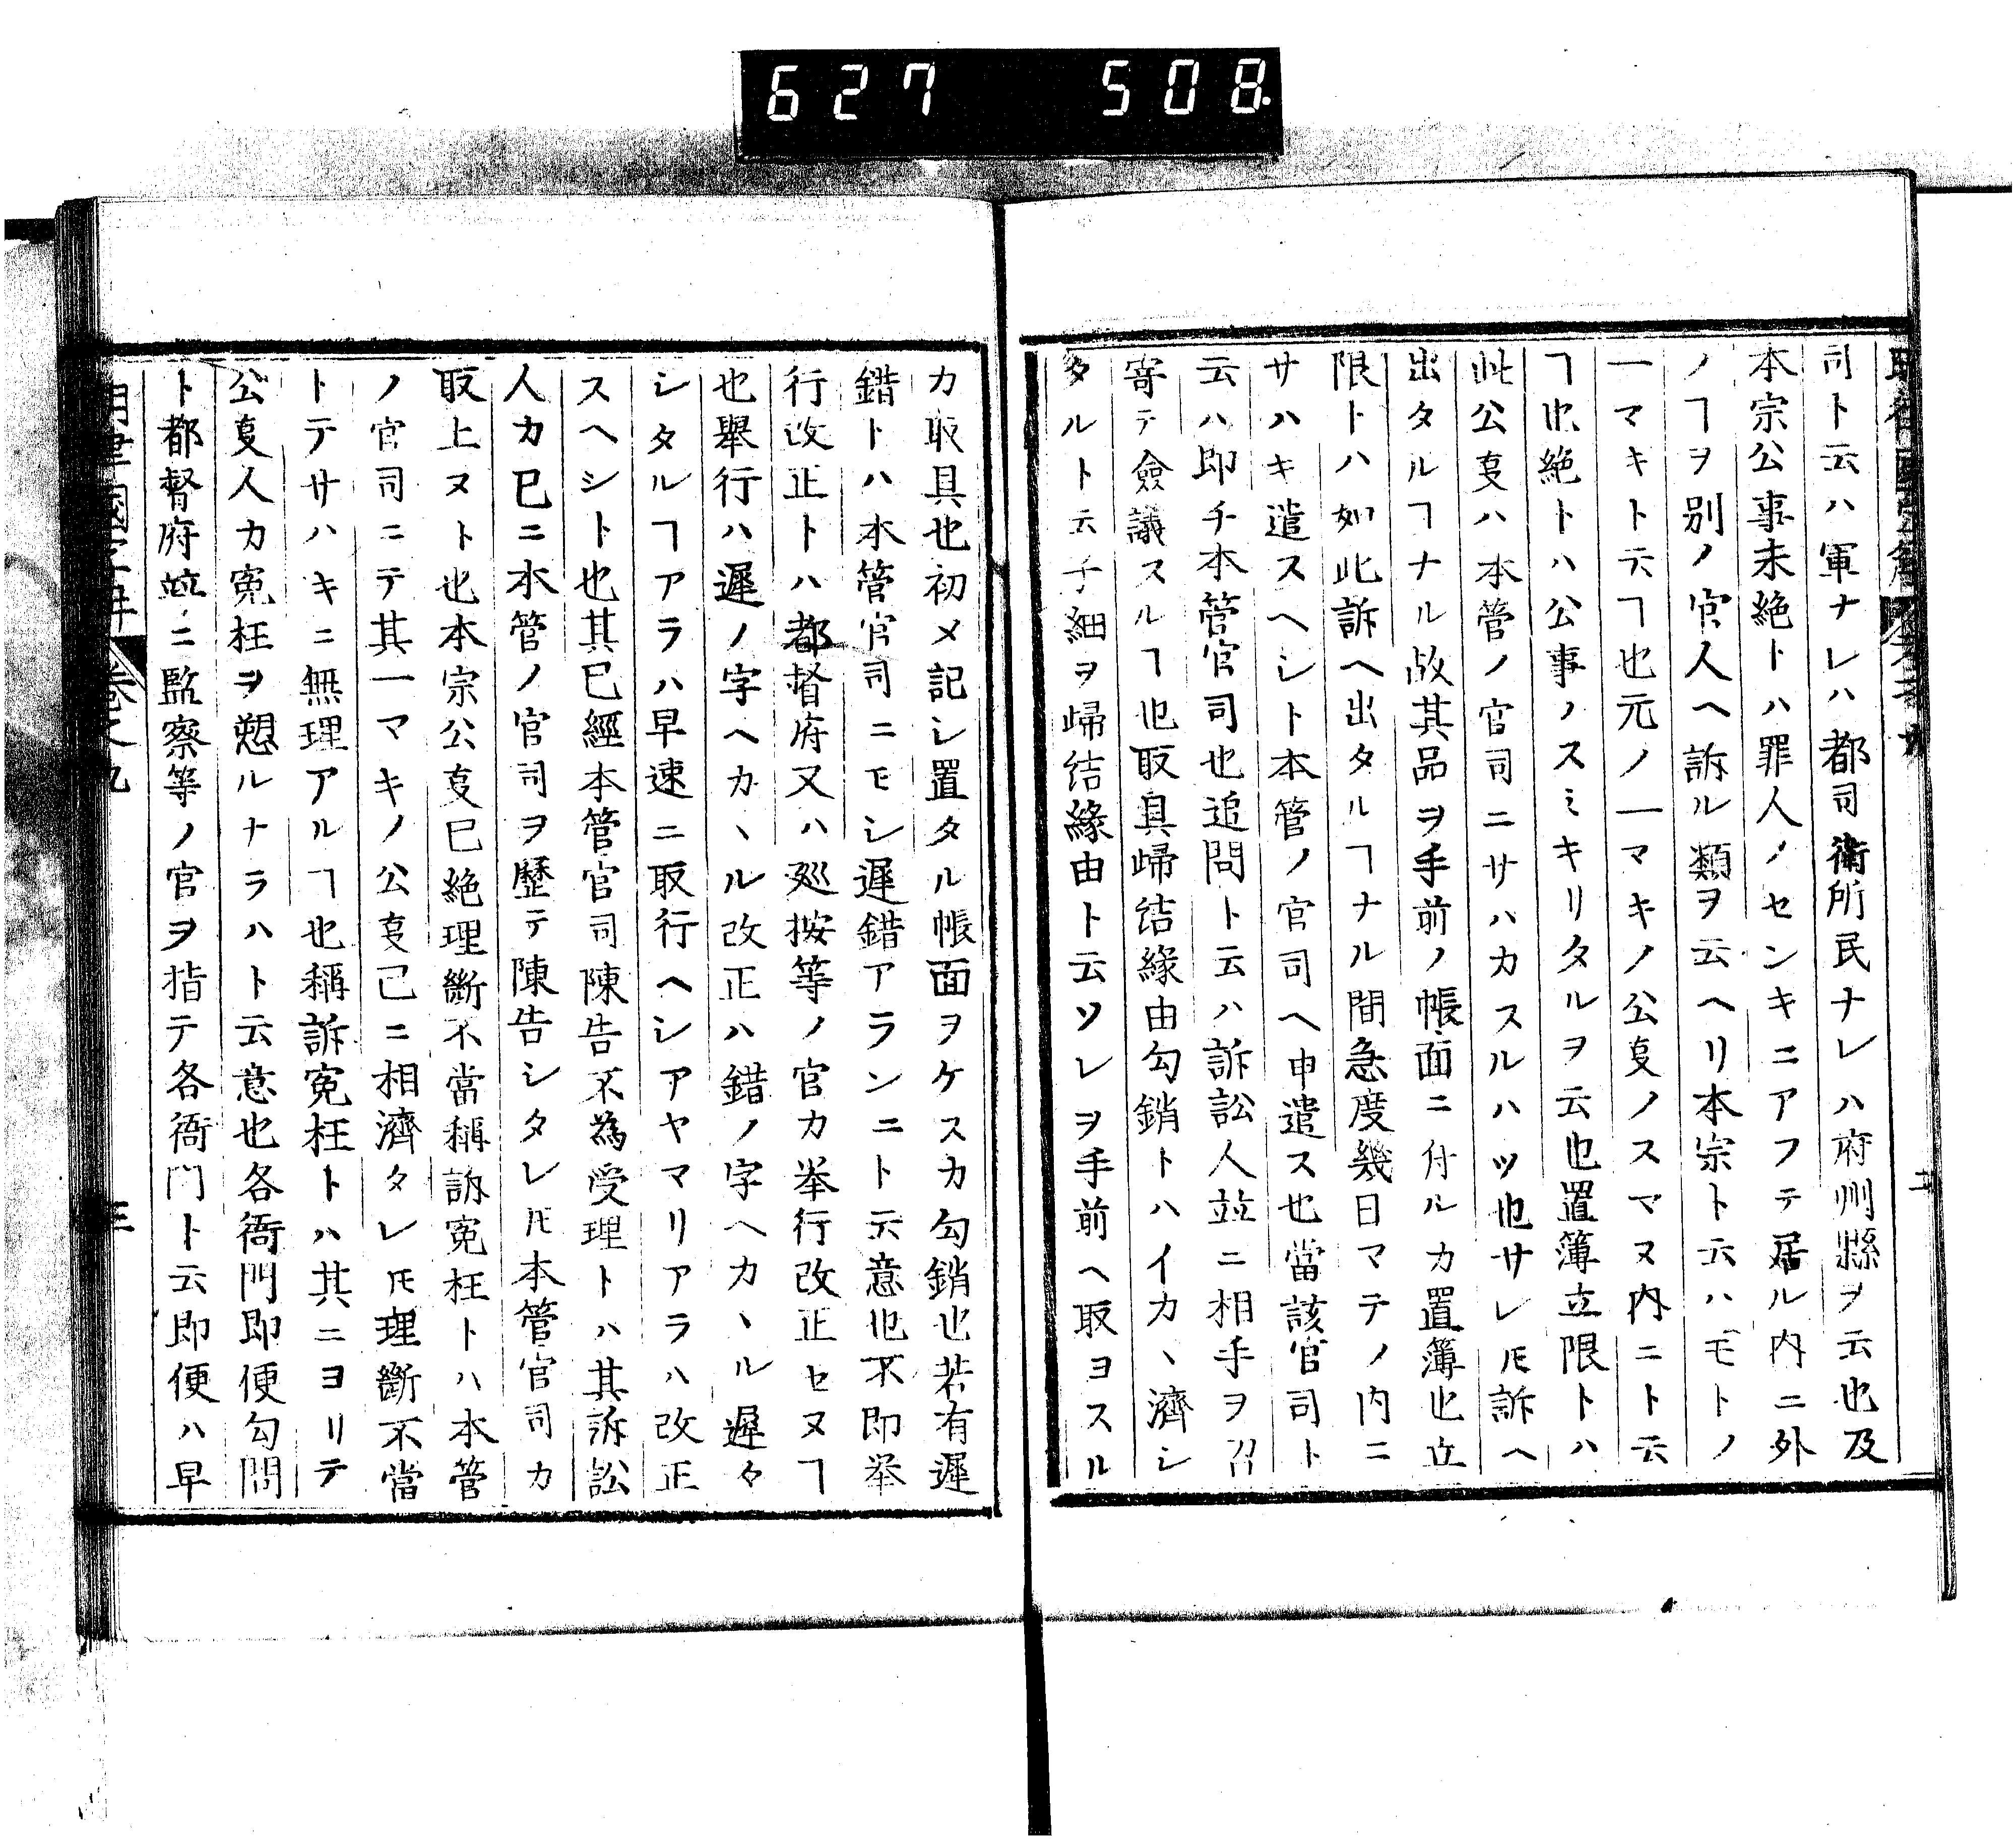 627 508
司ト云ハ軍ナレハ都司衛所民ナレハ府州縣ヲ云也及
本宗公事未絶トハ罪人ノセンキニアフテ居ル内ニ外
ノヿヲ別ノ官人ヘ訴ル類ヲ云ヘリ本宗ト云ハモトノ
一マキト云ヿ也元ノ一マキノ公㕝ノスマヌ内ニト云
ヿ也絶トハ公事ノスミキリタルヲ云也置簿立限トハ
此公㕝ハ本管ノ官司ニサハカスルハツ也サレ𪜈訴ヘ
出タルヿナル故其品ヲ手前ノ帳面ニ付ルカ置簿也立
限トハ如此訴ヘ出タルヿナル間急度幾日マテノ内ニ
サハキ遣スヘシト本管ノ官司ヘ申遣ス也當該官司ト
云ハ即チ本管官司也追問ト云ハ訴訟人並ニ相手ヲ召
寄テ僉議スルヿ也取具歸結縁由勾銷トハイカヽ濟シ
タルト云子細ヲ歸結縁由ト云ソレヲ手前ヘ取ヨスル
カ取具也初メ記シ置タル帳面ヲケスカ勾銷也若有遲
錯トハ本管官司ニモシ遲錯アランニト云意也不即挙
行改正トハ都督府又ハ廵按等ノ官カ挙行改正セヌヿ
也舉行ハ遲ノ字ヘカヽル改正ハ錯ノ字ヘカヽル遲々
シタルヿアラハ早速ニ取行ヘシアヤマリアラハ改正
スヘシト也其已經本管官司陳告不為受理トハ其訴訟
人カ已ニ本管ノ官司ヲ歷テ陳告シタレ𪜈本管官司カ
取上ヌト也本宗公㕝已絶理斷不當稱訴寃枉トハ本管
ノ官司ニテ其一マキノ公㕝已ニ相濟タレ𪜈理斷不當
トテサハキニ無理アルヿ也稱訴寃枉トハ其ニヨリテ
公㕝人カ寃枉ヲ愬ルナラハト云意也各衙門即便勾問
ト都督府並ニ監察等ノ官ヲ指テ各衙門ト云即便ハ早
卷之九
三